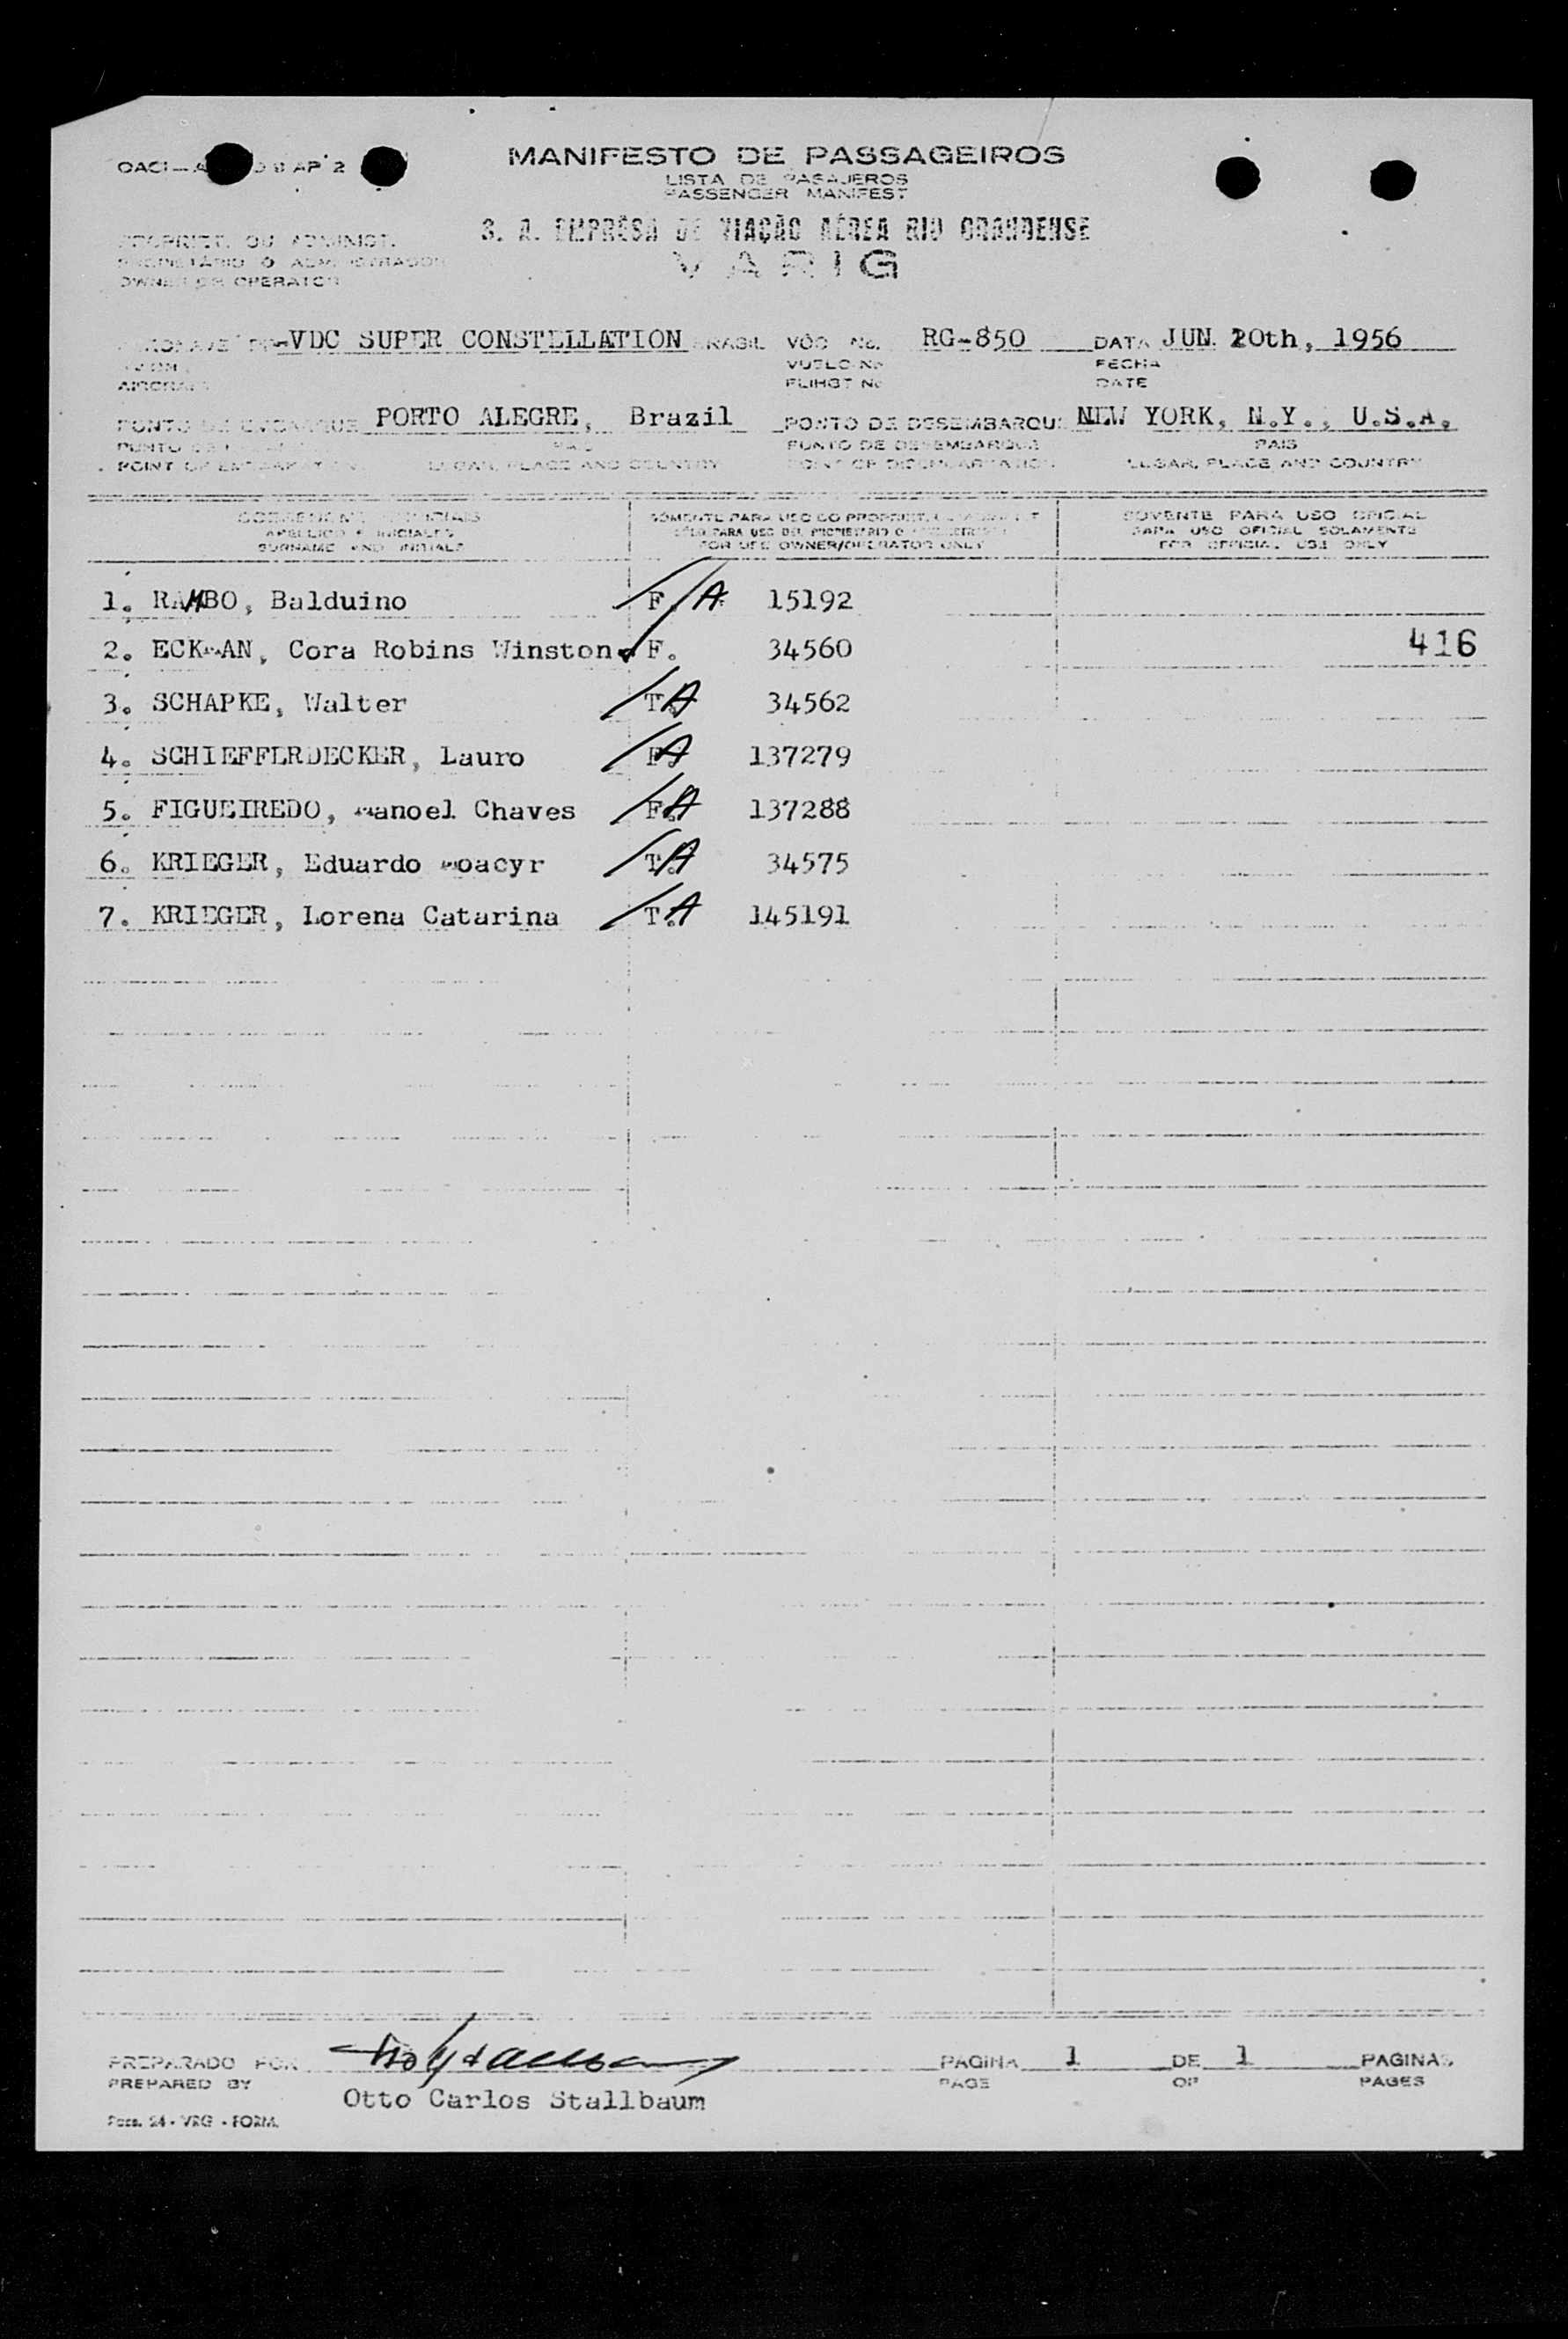 MANIFESTO DE PASSAGEIROS
LISTA DE PASAJEROS
PASSENGER MANIFEST
S. A. EMPRÊSA DE VIAÇÃO AÉREA RIO GRANDENSE
VARIG
PROPRIET. OU ADMINIST.
PROPIETÁRIO O ADMINISTRADOR
OWNER OR OPERATOR
-VDC SUPER CONSTELLATION BRASIL VÔO No. RG-850 DATA JUN. 20th, 1956
VUELO No FECHA
AIRCRAFT FLIHGT No DATE
PONTO DE EMBARQUE PORTO ALEGRE, Brazil PONTO DE DESEMBARQUE NEW YORK, N.Y., U.S.A.
PUNTO DE PUNTO DE DESEMBARQUE PAIS
POINT OF EMBARKATION LUGAR, PLACE AND COUNTRY POINT OF DISEMBARKATION LUGAR, PLACE AND COUNTRY
SOBRENOME INICIAIS SÓMENTE PARA USO DO PROPRIET. SOMENTE PARA USO OFICIAL
APELLIDO E INICIALES SÓLO PARA USO DEL PROPIETARIO O PARA USO OFICIAL SOLAMENTE
SURNAME AND INITIALS FOR USE OWNER/OPERATOR ONLY FOR OFFICIAL USE ONLY
1. RAMBO, Balduino F. A 15192
2. ECKMAN, Cora Robins Winston F. 34560 416
3. SCHAPKE, Walter T. A 34562
4. SCHIEFFERDECKER, Lauro F. A 137279
5. FIGUEIREDO, Manoel Chaves F. A 137288
6. KRIEGER, Eduardo Moacyr T. A 34575
7. KRIEGER, Lorena Catarina T. A 145191
PREPARADO POR PAGINA 1 DE 1 PAGINAS
PREPARED BY Otto Carlos Stallbaum PAGE OF PAGES
24 - VRG - FORM.